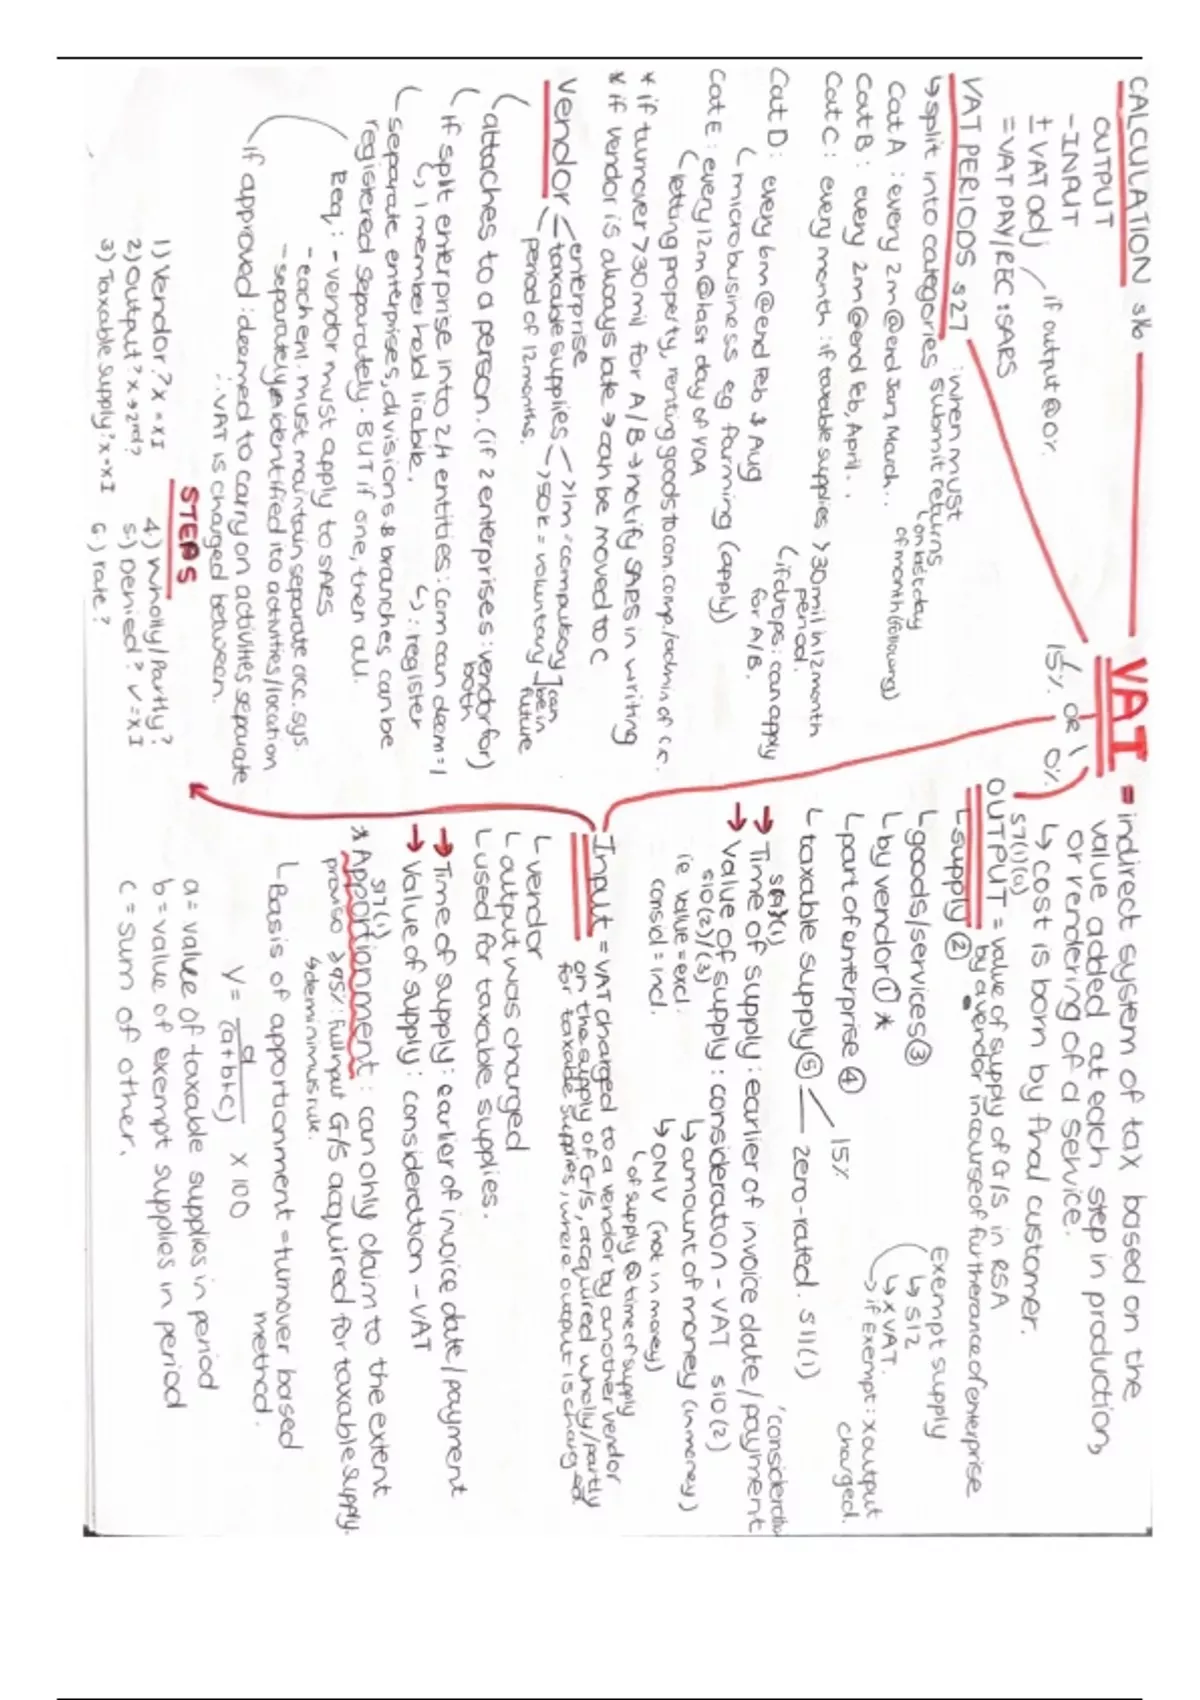 CALCULATION s16
OUTPUT
- INPUT
± VAT adj
if output @ or.
= VAT PAY/REC : SARS
VAT PERIODS s27 : when must
submit returns
↳ on last day
of month (following)
↳ split into categories
Cat A : every 2m @ end Jan, March...
Cat B : every 2m @ end Feb, April..
Cat C : every month : if taxable supplies > 30mil in 12 month
period.
↳ if drops : can apply
for A/B.
Cat D : every 6m @ end Feb & Aug
↳ micro business eg farming (apply)
Cat E : every 12m @ last day of YOA
↳ letting property, renting goods to con. comp. /admin of c.s.
* if turnover > 30mil for A/B → notify SARS in writing
* if vendor is always late → can be moved to C
Vendor
enterprise
taxable supplies
> 1m = compulsory
> 50k = voluntary
can
be in
future
period of 12 months.
↳ attaches to a person. (if 2 enterprises : vendor for)
both
↳ if split enterprise into 2/+ entities : com can deem = 1
↳ 1 member held liable.
↳ : register
↳ separate enterprises, divisions & branches can be
registered separately. BUT if one, then all.
Req : - vendor must apply to SARS
- each ent. must maintain separate acc. sys.
- separately identified ito activities/location
↳ if approved : deemed to carry on activities separate
∴ VAT is charged between.
STEPS
1) Vendor? x = xI
2) Output? x → 2nd?
3) Taxable supply? x = xI
4.) Wholly/Partly?
5.) Denied? ✓ = xI
6.) rate?
VAT = indirect system of tax based on the
value added at each step in production,
or rendering of a service.
↳ cost is born by final customer.
15% OR 0%
s7(1)(a)
OUTPUT = value of supply of G/S in RSA
by a vendor in course of furtherance of enterprise
↳ supply ②
↳ goods/services ③
↳ by vendor ① *
↳ part of enterprise ④
↳ taxable supply ⑤
15%
zero-rated. s11(1)
Exempt supply
↳ s12
↳ x VAT.
↳ if Exempt : x output
charged.
→ Time of supply : earlier of invoice date/payment
'consideration
s9(1)
→ Value of supply : consideration - VAT s10(2)
s10(2)/(3)
ie value = excl.
consid = incl.
↳ amount of money (in money)
↳ OMV (not in money)
↳ of supply @ time of supply
Input = VAT charged to a vendor by another vendor
on the supply of G/S, acquired wholly/partly
for taxable supplies, where output is charged
↳ vendor
↳ output was charged
↳ used for taxable supplies.
→ Time of supply : earlier of invoice date/payment
→ Value of supply : consideration - VAT
s17(1)
* Apportionment : can only claim to the extent
proviso ≥ 95% : full input G/S acquired for taxable supply.
↳ deminimus rule.
↳ Basis of apportionment = turnover based
method.
y = a / (a+b+c) x 100
a = value of taxable supplies in period
b = value of exempt supplies in period
c = sum of other.